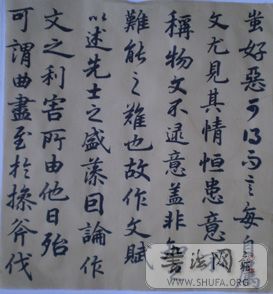 蚩好惡可得而言每自屬
文尤見其情恒患意不
稱物文不逮意蓋非知
難能之難也故作文賦
以述先士之盛藻因論作
文之利害所由他日殆
可謂曲盡至於操斧伐
書法网
WWW.SHUFA.ORG